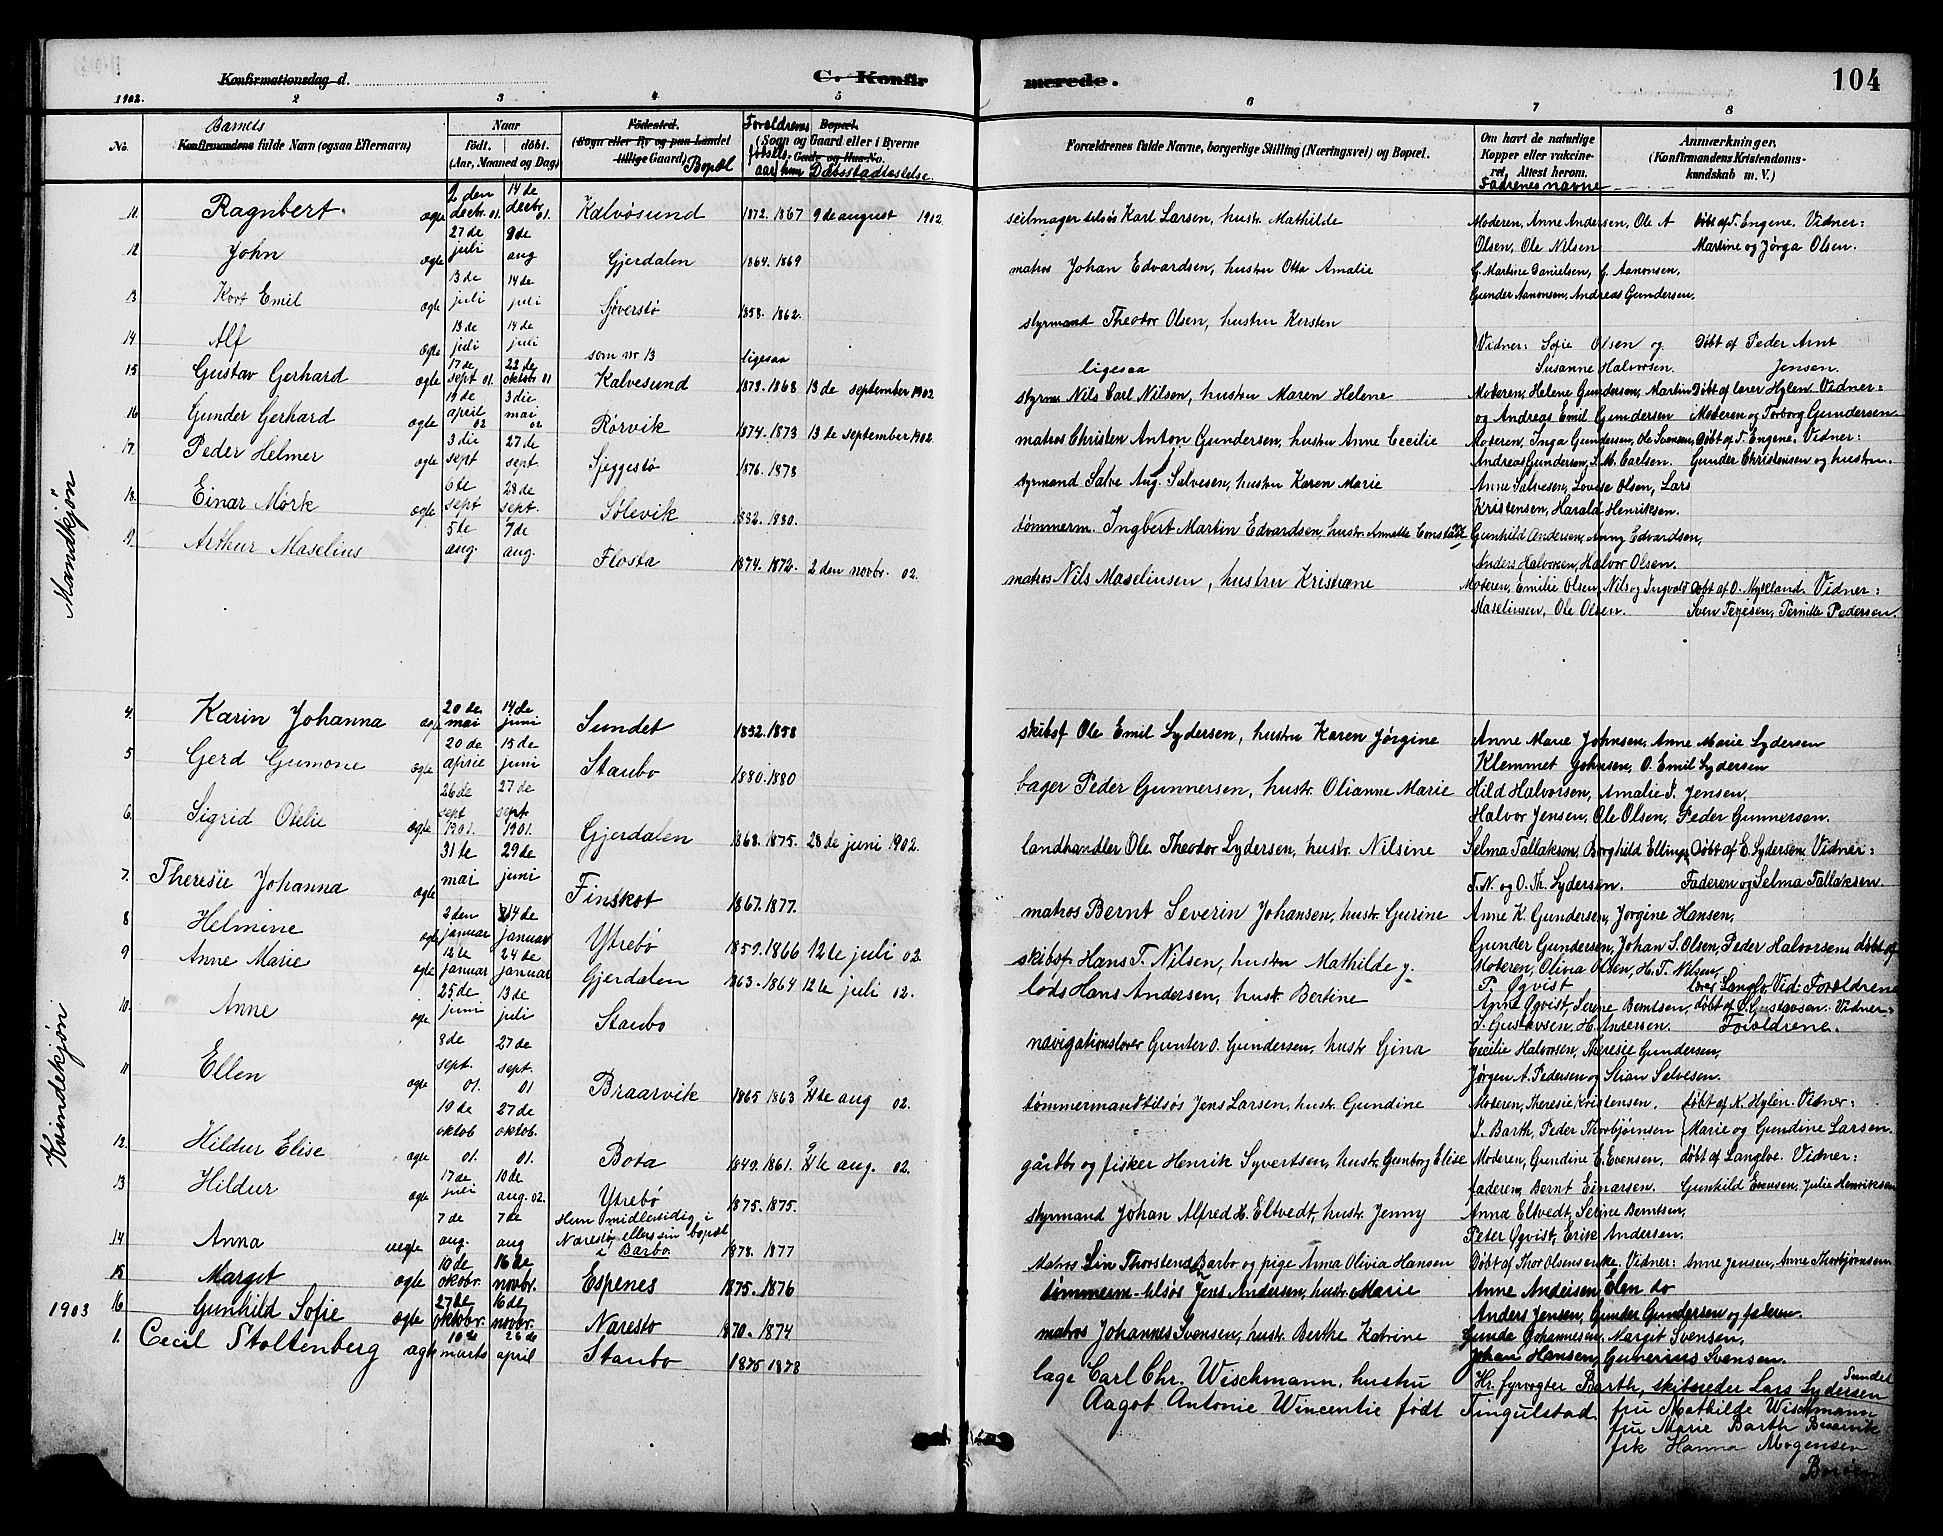 Konfirmationsdag d.
C. Konfirmerede.
104
1902.
2 3 4 5 6 7 8
No.
Barnets
Konfirmandens fulde Navn (ogsaa Efternavn)
Naar
Født. døbt.
(Aar, Maaned og Dag)
Fødested.
(Sogn eller By og paa Landet tillige Gaard)
Bopæl
Forældrenes fødsels aar
Bopæl.
(Sogn og Gaard eller i Byerne Gade og Hus-No.
Daabsstadfæstelse.
Forældrenes fulde Navne, borgerlige Stilling (Næringsvei) og Bopæl.
Om havt de naturlige Kopper eller vakcineret, Attest herom.
Fadrenes navne
Anmærkninger.
(Konfirmandens Kristendomskundskab m. V.)
Mandkjøn
11. Ragnbert. ægte 2 den decbr. 01. 14 de decbr 01. Kalvøsund 1872. 1867 9 de august 1902. seilmager Karl Larsen, hustr. Mathilde Moderen, Anne Andersen, Ole A Olsen, Ole Nilsen døbt af T. Engene. Vidner: Martine og Jørga Olsen.
12 John ægte 27 de juli 9 de aug Gjerdalen 1864. 1869 matros Johan Edvardsen, hustru Otta Amalie G. Martine Danielsen, G. Aanonsen, Gunder Aanonsen, Andreas Gundersen,
13 Kort Emil ægte 13 de juli 14 de juli Sjøverstø 1858. 1862. styrmand Theodor Olsen, hustru Kirsten
14 Alf ægte 13 de juli 14 de juli som nr 13 ligesaa ligesaa Vidner: Sofie Olsen og Susanne Halvorsen. Døbt af Peder Arnt Jensen.
15 Gustav Gerhard ægte 17 de sept 01. 22 de oktobr 01 Kalvesund 1873. 1868 13 de september 1902 styrm Nils Carl Nilsen, hustru Maren Helene Moderen, Helene Gundersen, Martin og Andreas Emil Gundersen Døbt af lærer Hylen. Vidner: Moderen og Torborg Gundersen
16 Gunder Gerhard ægte 19 de april 02 3 die mai 02 Rørvik 1874. 1873 13 de september 1902. matros Christen Anton Gundersen, hustru Anne Cecilie Moderen, Inga Gundersen, Ole Svensen, Andreas Gundersen, S. M. Carlsen. Døbt af T. Engene. Vidner: Gunder Christensen og hustru.
17. Peder Helmer ægte 3 die sept 27 de sept Sjeggestø 1876. 1878 styrmand Salve Aug. Salvesen, hustru Karen Marie Anne Salvesen, Lovise Olsen, Lars Kristensen, Harald Henriksen.
18. Einar Mørk ægte 6 te sept 28 de sept. Sølevik 1882. 1880. tømmerm. Ingbert Martin Edvardsen, hustr. Annette Gunhild Andersen, Anny Edvardsen, Anders Halvorsen, Halvor Olsen.
19. Arthur Maselius 5 te aug. 7 de aug. Flosta 1874. 1872. 2 den novbr. 02. matros Nils Maselinsen, hustru Kristiane Moderen, Emilie Olsen, Nils og Ingvold Maselinsen, Ole Olsen. Døbt af O. Nykland. Vidner: Sven Terjesen, Pernille Pedersen.
Kvindekjøn
4. Karin Johanna ægte 20 de mai 14 de juni Sundet 1852. 1858 skibsf Ole Emil Lydersen, hustru Karen Jørgine Anne Marie Johnsen, Anne Marie Lydersen Klemmet Johnsen, O. Emil Lydersen
5 Gerd Gumone ægte 20 de 15 de juni Staubo 1880. 1880 bager Peder Gunnersen, hustr. Olianne Marie Hild Halvorsen, Amalie S. Jensen, Halvor Jensen, Ole Olsen, Peder Gunnersen.
6. Sigrid Otelie ægte 26 de sept 1901. 27 de sept. 1901. Gjerdalen 1868. 1875. 28 de juni 1902. landhandler Ole Theodor Lydersen, hustr. Nilsine Selma Tallaksen, Borghild Ellings T. N. og O. Th. Lydersen. Døbt af E. Lydersen. Vidner: Faderen og Selma Tallaksen.
7. Theresie Johanna ægte 31 te mai 29 de juni Finskot 1867. 1877. matros Bernt Severin Johansen, hustr. Gurine Anne K. Gundersen, Jorgine Hansen, Gunder Gundersen, Johan S. Olsen, Peder Halvorsen
8 Helmine ægte 2 den januar 24 de januar Ytrebø 1859. 1866 12 te juli 02. skibsf. Hans T. Nilsen, hustru Mathilde Moderen, Olivia Olsen, H. T. Nilsen, P. Øqvist døbt af lærer Langlo, Vid: Forældrene
9 Anne Marie ægte 12 te januar 24 de januar Gjerdalen 1863. 1864 12 te juli 02. lods Hans Andersen, hustr. Bertine Anna Øqvist, Serine Berntsen, S. Gustavsen, H. Andersen. døbt af S. Gustavsen. Vidner: Forældrene.
10. Anne ægte 25 de juni 13 de juli Staubo navigationslærer Gunter O. Gundersen, hustr Gina Cecilie Halvorsen, Theresie Gundersen, Jørgen A. Pedersen og Stian Salvesen.
11 Ellen ægte 8 de sept. 01. 27 de sept. 01 Braarvik 1865 1863 9 de aug 02. tømmermand Jens Larsen, hustr. Gundine Moderen, Theresie Kristensen, S. Barth, Peder Thorbjørnsen døbt af K. Hylen. Vidner: Marie og Gundine Larsen.
12. Hildur Elise ægte 19 de oktob 01. 27 de oktob. 01. Bota 1849. 1861. 9 de aug. 02. gårdbr og fisker Henrik Syvertsen, hustr. Gunborg Elise Moderen, Gundine E. Evensen, faderen, Bernt Einarsen. døbt af Langlo. Vidner: Gunhild Evensen, Julie Henriksen
13 Hildur ægte 17 de juli 10 de aug. 02. Ytrebø 1875. 1875. styrmand Johan Alfred H. Eltvedt, hustr. Jenny Anna Eltvedt, Serine Berntsen, Peter Øqvist, Erik Andersen.
14 Anna uægte 7 de aug. 7 de aug Hun midlersidig i Narestø, ellers sin bopæl i Barbo 1878. 1877 Matros Lin Thorstensen Barbo og pige Anna Olivia Hansen Døbt af Thor Olsens enke. Vidner: Anne Jensen, Anne Thorbjørnsen
15 Marget ægte 10 de okobr. 16 de novbr. Espenes 1875. 1876 tømmerm Jens Andersen, hustr. Marie Anne Andersen, Elen do Anders Jensen, Gunder Gundersen og faderen.
16 Gunhild Sofie ægte 27 de oktobr. 16 de novbr. Narestø 1870. 1874 matros Johannes Svensen, hustr. Berthe Katrine Gunda Johannesen, Margit Svensen, Johan Hansen, Gunerius Svensen.
1903
1. Cecil Stoltenberg ægte 10 de marts 26 de april Staubo 1875 1878 læge Carl Chr. Wischmann, hustru Aagot Antonie Wincentie født Tingulstad. Hr. fyrvogter Barth, skibsreder Lars Lydersen Sundet
fru Mathilde Wischmann
fru Marie Barth Buarvik
frk Hanna Mogensen